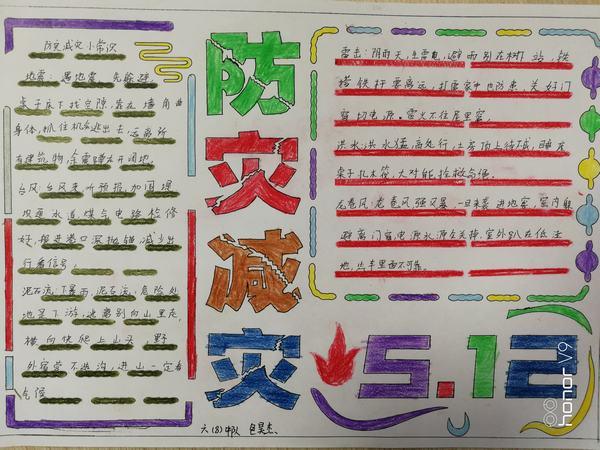 防灾减灾小常识
地震:遇地震,先躲避,
桌子床下找空隙,靠在墙角曲
身体,抓住机会逃出去,远离所
有建筑物,余震蹲在开阔地。
台风:台风来,听预报,加固堤
坝通水道,煤气电路检修
好,船进港口深抛锚,减少出
行看信号。
泥石流:下暴雨,泥石流,危险处
地是下游,逃离别向山里走,
横向快爬上山头,野
外宿营不选沟,进山一定看
气候
防灾减灾
雷击:阴雨天,生雷电,避雨别在树下站,铁
塔铁杆要离远,打雷家中也防患,关好门
窗切电源,雷火不住屋里窜,
洪水:洪水猛,高处行,土房顶上待不成,睡床
桌子扎木筏,大树能拴救命绳。
龙卷风:龙卷风,强风暴,一旦来袭进地窖,室内躲
避离门窗,电源水源全关掉,室外趴在低洼
地,汽车里面不可靠。
5.12
六(8)中队
honor V9